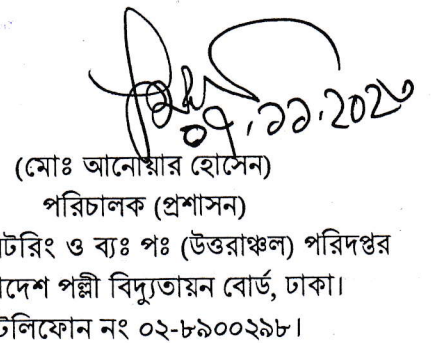 ০৭.১১.২০২৩
(মোঃ আনোয়ার হোসেন)
পরিচালক (প্রশাসন)
টরিং ও ব্যঃ পঃ (উত্তরাঞ্চল) পরিদপ্তর
াদেশ পল্লী বিদ্যুতায়ন বোর্ড, ঢাকা।
টেলিফোন নং ০২-৮৯০০২৯৮।